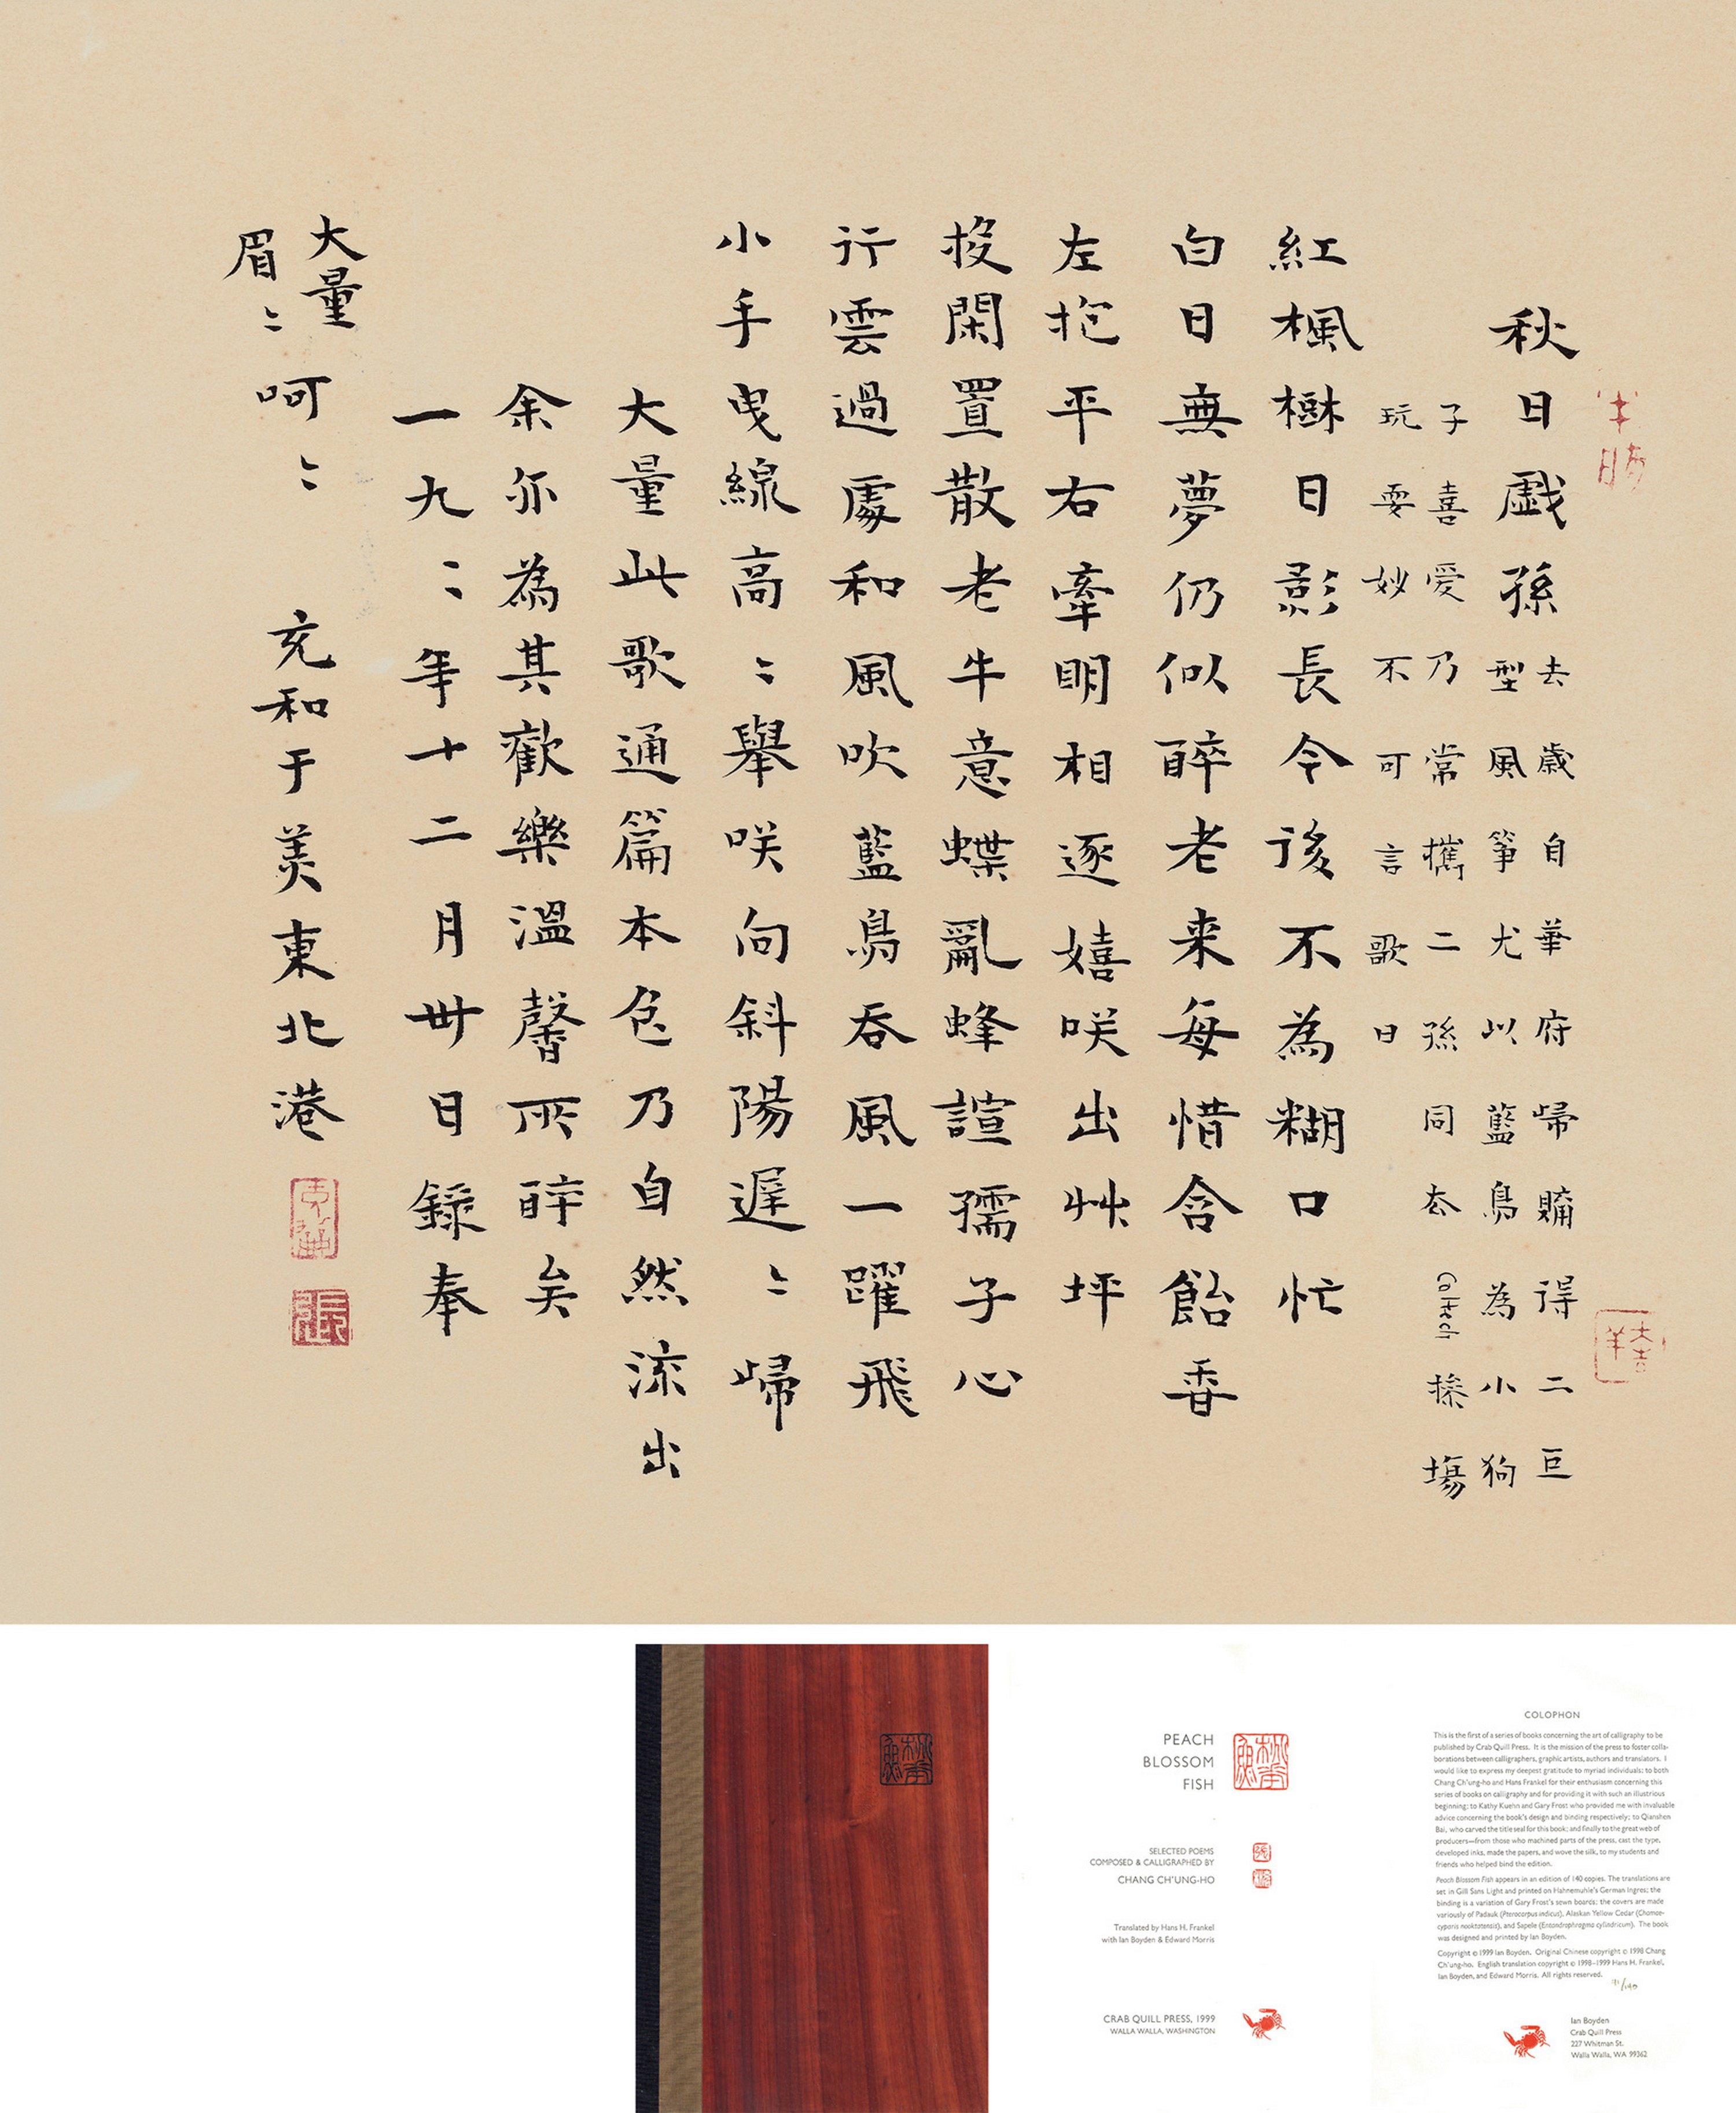 秋日戯孫
去歲自華府歸購得二巨
型風箏尤以藍鳥為小狗
子喜愛乃常攜二孫同去 操場
玩耍妙不可言歌曰
紅楓樹日影長今後不為糊口忙
白日無夢仍似醉老来每惜含飴香
左抱平右牽明相逐嬉咲出艸坪
投閑置散老牛意蝶亂蜂諠孺子心
行雲過處和風吹藍鳥吞風一躍飛
小手曳線高〻舉咲向斜陽遲〻歸
大量此歌通篇本色乃自然流出
余亦為其歡樂溫馨所醉矣
一九〻年十二月卅日錄奉
大量
眉〻
呵〻 充和于美東北港
PEACH
BLOSSOM
FISH
SELECTED POEMS
COMPOSED & CALLIGRAPHED BY
CHANG CH'UNG-HO
Translated by Hans H. Frankel
with Ian Boyden & Edward Morris
CRAB QUILL PRESS, 1999
WALLA WALLA, WASHINGTON
COLOPHON
This is the first of a series of books concerning the art of calligraphy to be
published by Crab Quill Press. It is the mission of the press to foster colla-
borations between calligraphers, graphic artists, authors and translators. I
would like to express my deepest gratitude to myriad individuals: to both
Chang Ch'ung-ho and Hans Frankel for their enthusiasm concerning this
series of books on calligraphy and for providing it with such an illustrious
beginning; to Kathy Kuehn and Gary Frost who provided me with invaluable
advice concerning the book's design and binding respectively; to Qianshen
Bai, who carved the title seal for this book; and finally to the great web of
producers—from those who machined parts of the press, cast the type,
developed inks, made the papers, and wove the silk, to my students and
friends who helped bind the edition.
Peach Blossom Fish appears in an edition of 140 copies. The translations are
set in Gill Sans Light and printed on Hahnemuhle's German Ingres; the
binding is a variation of Gary Frost's sewn boards; the covers are made
variously of Padauk (Pterocarpus indicus), Alaskan Yellow Cedar (Chamae-
cyparis nooktatensis), and Sapele (Entandrophragma cylindricum). The book
was designed and printed by Ian Boyden.
Copyright © 1999 Ian Boyden. Original Chinese copyright © 1998 Chang
Ch'ung-ho. English translation copyright © 1998–1999 Hans H. Frankel,
Ian Boyden, and Edward Morris. All rights reserved.
Ian Boyden
Crab Quill Press
227 Whitman St.
Walla Walla, WA 99362